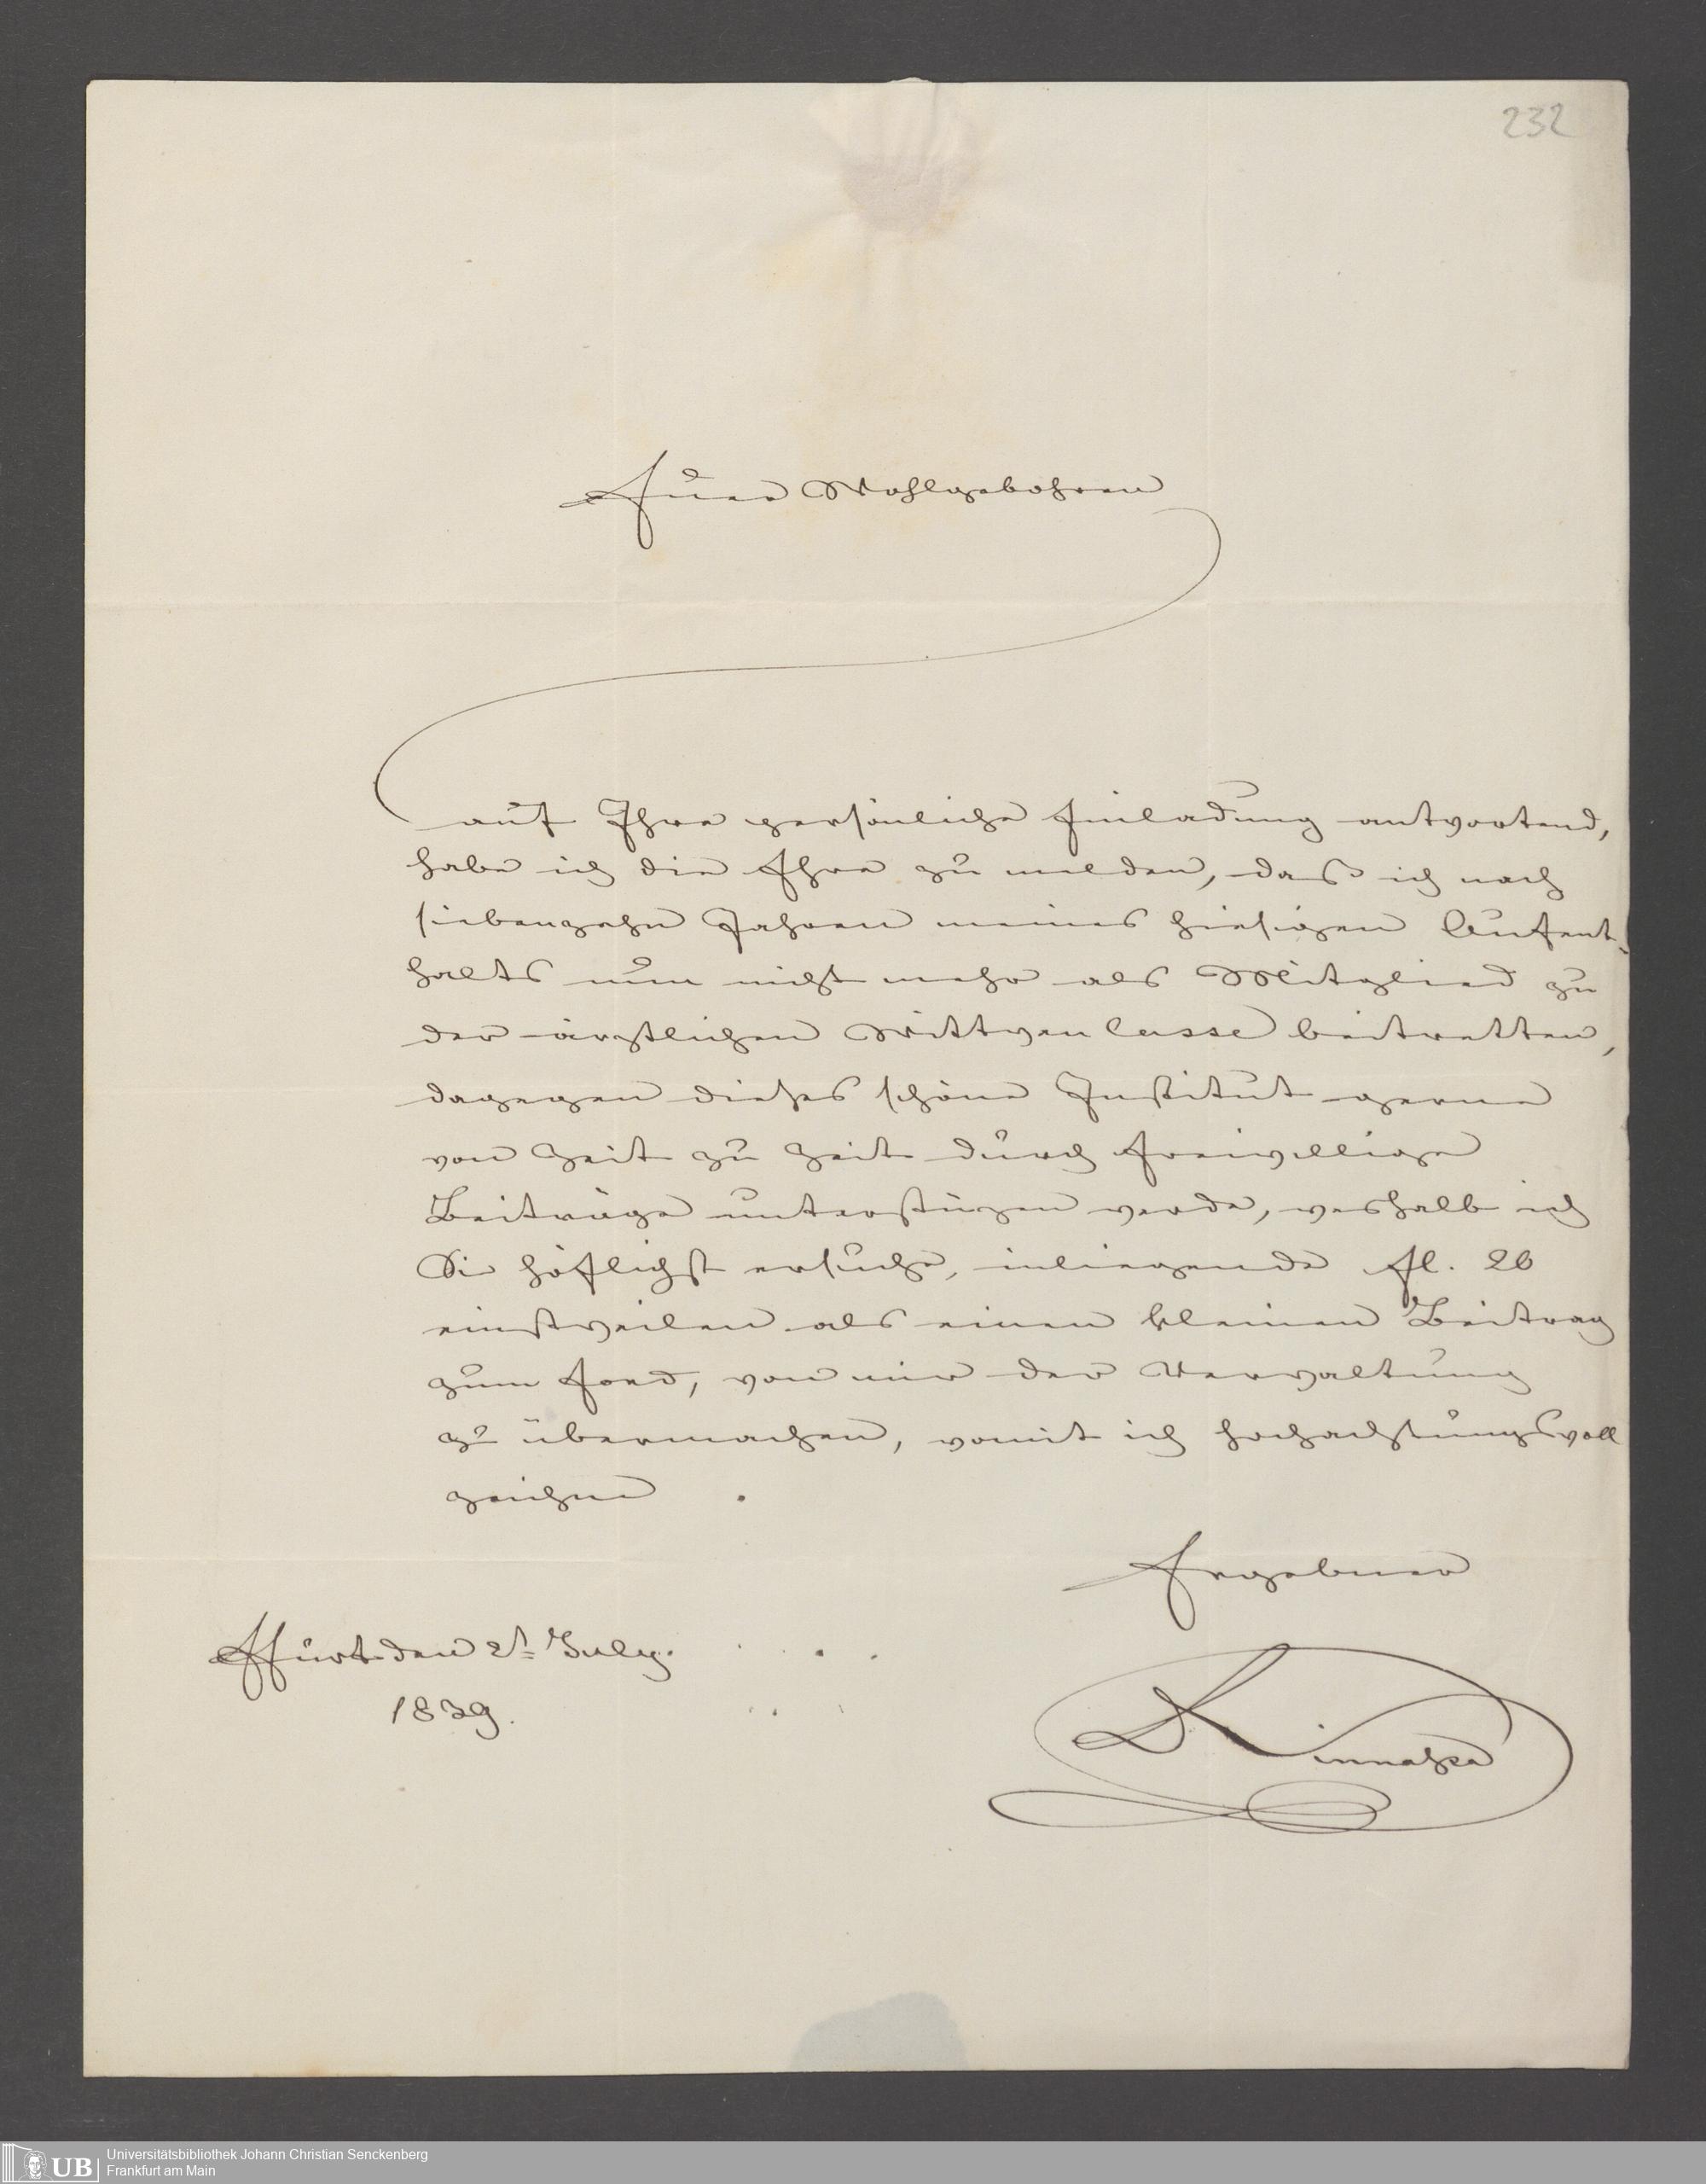 232
Euer Wohlgebohren
auf Ihre persönliche Einladung antwortend,
habe ich die Ehre zu melden, daß ich nach
siebenzehn Jahren meines hiesigen Aufent-
halts nun nicht mehr als Mitglied zu
der ärztlichen Wittwen Casse beitretten,
dagegen dieses schöne Institut gerne
von Zeit zu Zeit durch freiwillige
Beiträge unterstüzen werde, weshalb ich
Sie höflichst ersuche, inliegende fl. 20
einstweilen als einen kleinen Beitrag
zum Fond, von mir der Verwaltung
zu übermachen, womit ich hochachtungsvoll
zeichne
Ergebner
Ffurt den 2t July.
1839.
UB Universitätsbibliothek Johann Christian Senckenberg
Frankfurt am Main